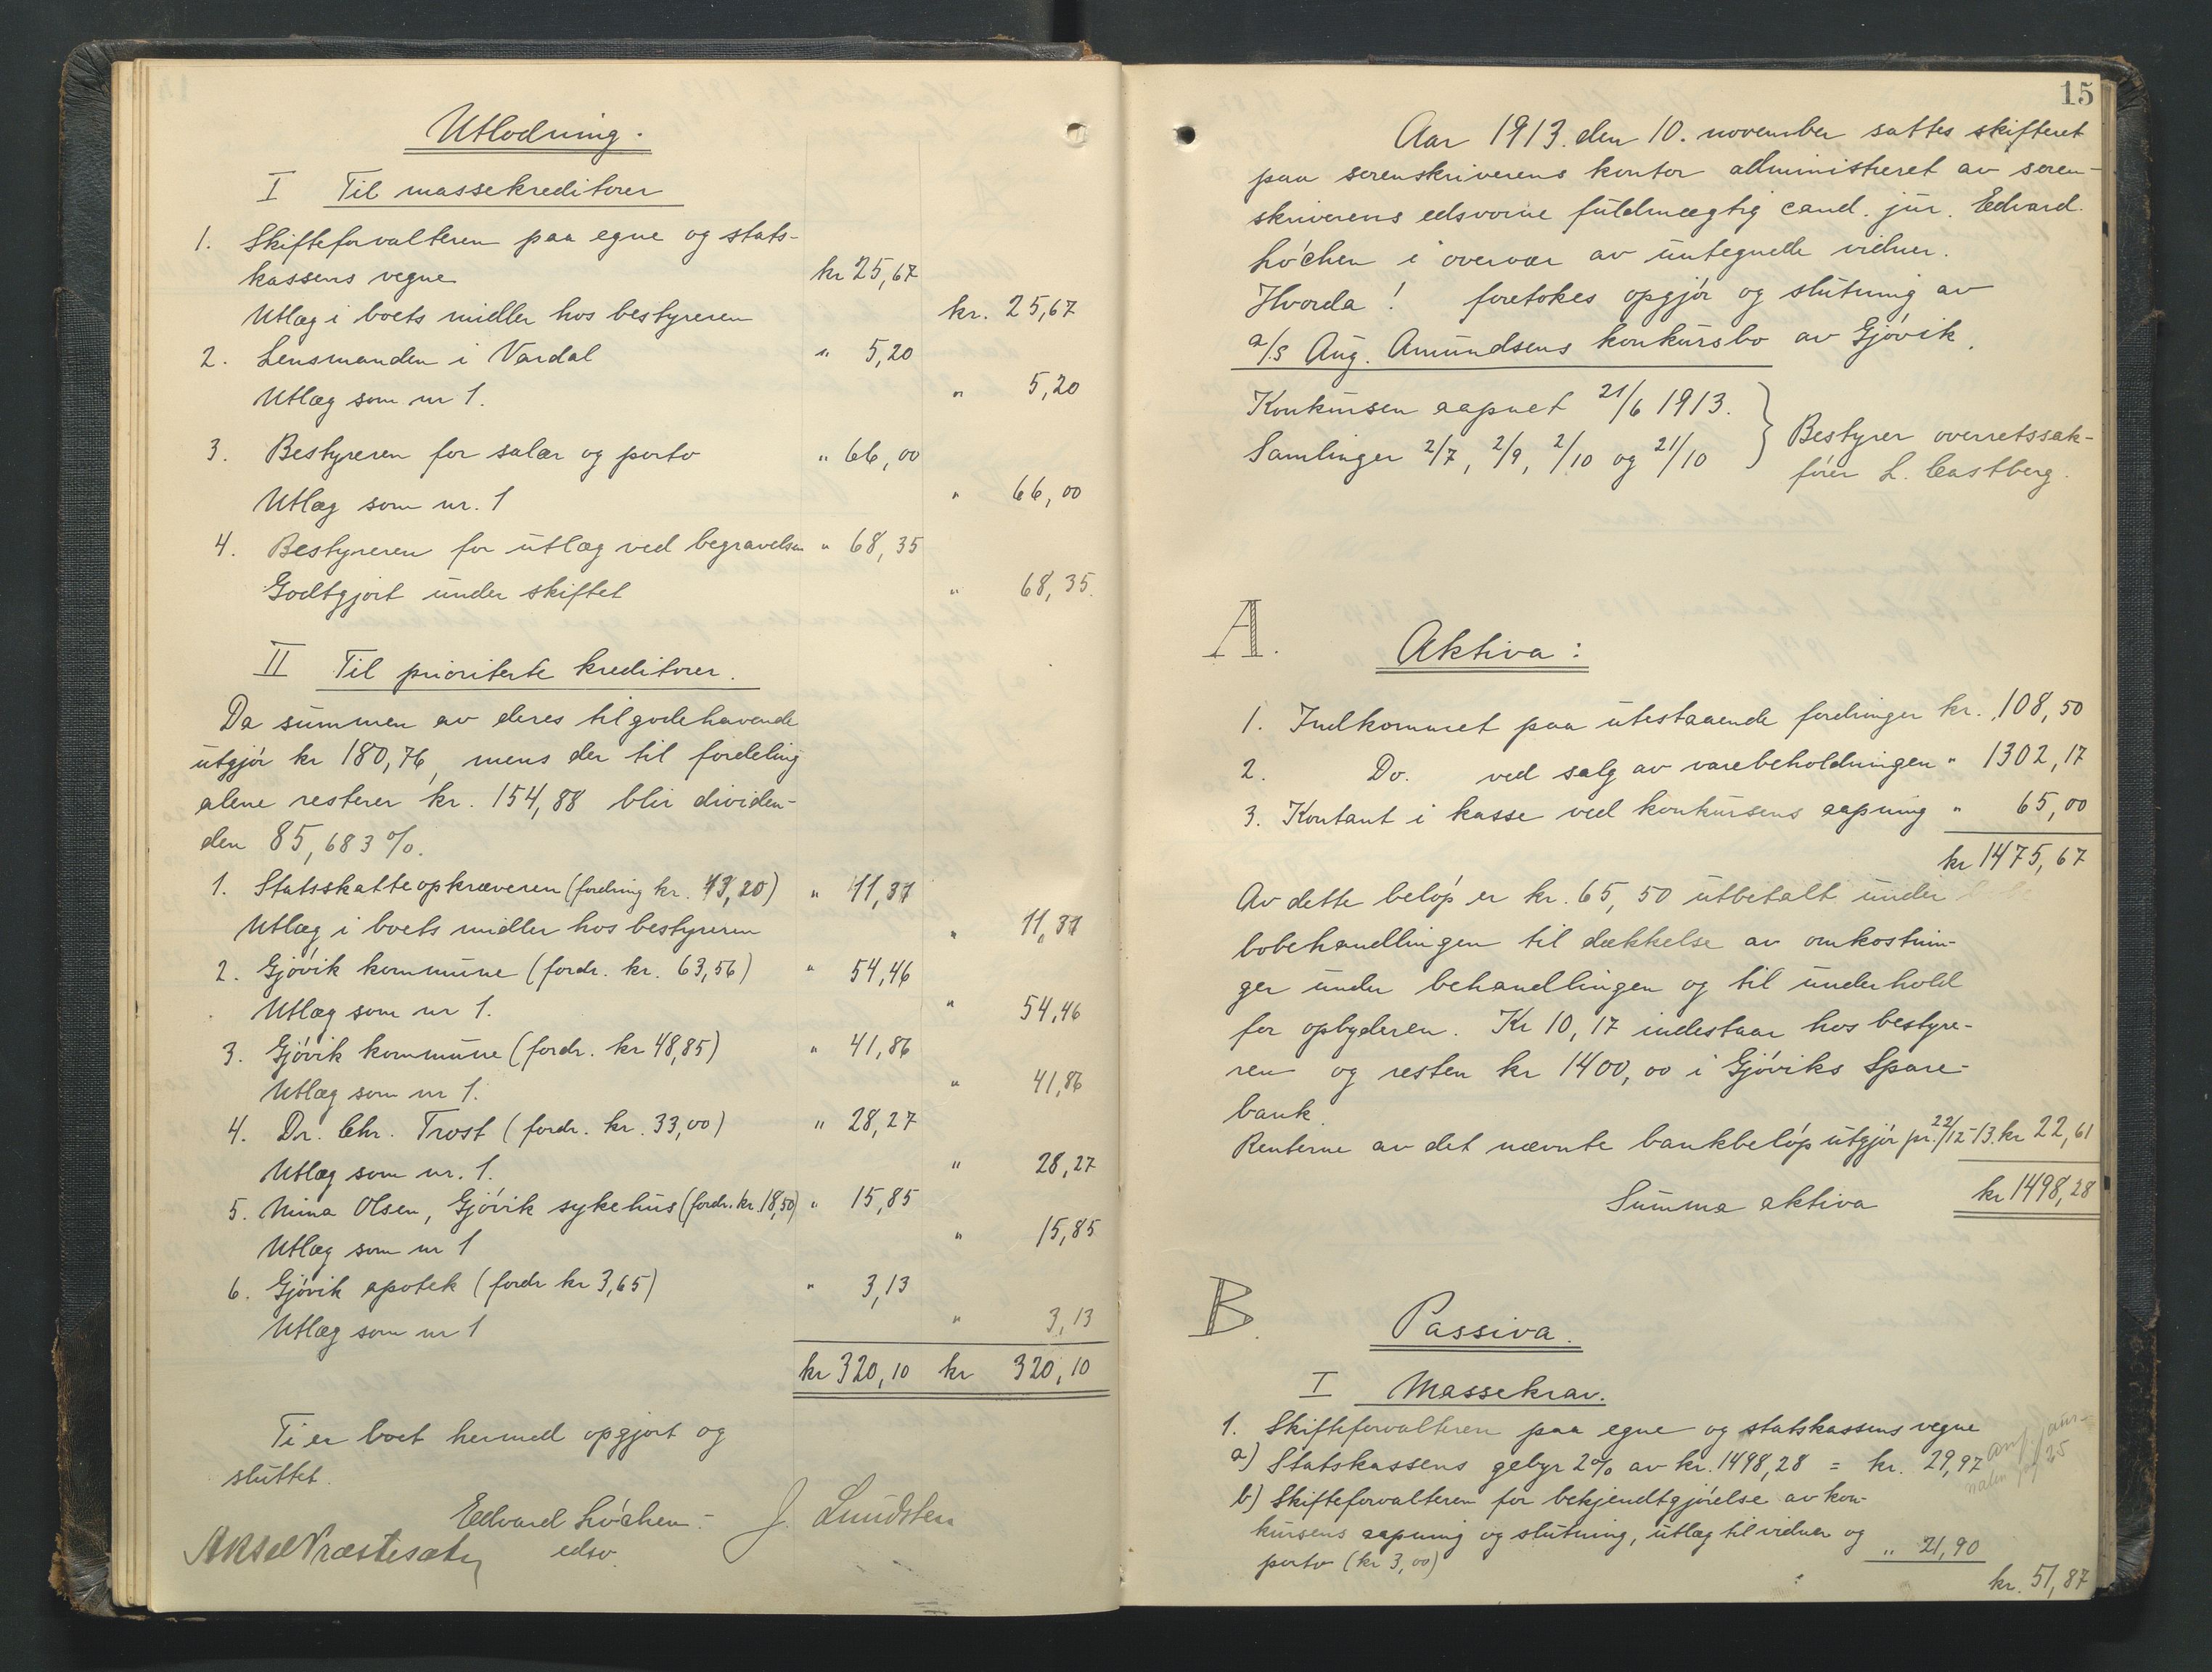 Utlodning.
I Til massekreditorer
1. Skifteforvalteren paa egne og stats-
kassens vegne kr 25,67
Utlæg i boets midler hos bestyreren kr. 25,67
2. Lensmanden i Vardal " 5,20
Utlæg som nr 1. " 5,20
3. Bestyreren for salær og porto " 66,00
Utlæg som nr. 1 " 66,00
4. Bestyreren for utlæg ved begravelsen " 68,35
Godtgjort under skiftet " 68,35.
II Til prioriterte kreditorer.
Da summen av deres tilgodehavende
utgjør kr 180,76, mens der til fordeling
alene resterer kr. 154,88 blir dividen-
den 85,683 %.
1. Statsskatteopkræveren (fordring kr. 13,20) " 11,31
Utlæg i boets midler hos bestyreren " 11,31
2. Gjøvik kommune (fordr. kr. 63,56) " 54,46
Utlæg som nr 1. " 54,46
3. Gjøvik kommune (fordr. kr 48,85) " 41,86
Utlæg som nr 1. " 41,86
4. Dr. Chr. Trost (fordr. kr. 33,00) " 28,27
Utlæg som nr. 1. " 28,27
5. Mina Olsen, Gjøvik sykehus (fordr. kr. 18,50) " 15,85
Utlæg som nr 1 " 15,85
6. Gjøvik apotek (fordr kr 3,65) " 3,13
Utlæg som nr 1 " 3,13
kr 320,10 kr 320,10
Ti er boet hermed opgjort og
sluttet.
Edvard Løchen J. Lundsten
Aksel edsv.
15
Aar 1913. den 10. november sattes skifteret
paa sorenskriverens kontor administreret av soren-
skriverens edsvorne fuldmægtig cand. jur. Edvard
Løchen i overvær av untegnede vidner.
Hvorda! foretokes opgjør og slutning av
a/s Aug. Amundsens konkursbo av Gjøvik.
Konkursen aapnet 21/6 1913.
Samlinger 2/7, 2/9, 2/10 og 21/10
} Bestyrer overretssak-
fører L. Castberg.
A. Aktiva:
1. Indkommet paa utestaaende fordringer kr. 108,50
2. Do. ved salg av varebeholdningen " 1302,17
3. Kontant i kasse ved konkursens aapning " 65,00
kr 1475,67
Av dette beløp er kr. 65,50 utbetalt under
bobehandlingen til dækkelse av omkostnin-
ger under behandlingen og til underhold
for opbyderen. Kr 10,17 indestaar hos bestyre-
ren og resten kr 1400,00 i Gjøviks Spare-
bank.
Renterne av det nævnte bankbeløp utgjør pr. 22/12-13. kr 22,61
Summa aktiva kr 1498,28
B. Passiva.
I Massekrav.
1. Skifteforvalteren paa egne og statskassens vegne
a) Statskassens gebyr 2% av kr. 1498,28 = kr. 29,97
b) Skifteforvalteren for bekjendtgjørelse av kon-
kursens aapning og slutning, utlæg til vidner og
porto (kr 3,00) " 21,90
kr. 51,87